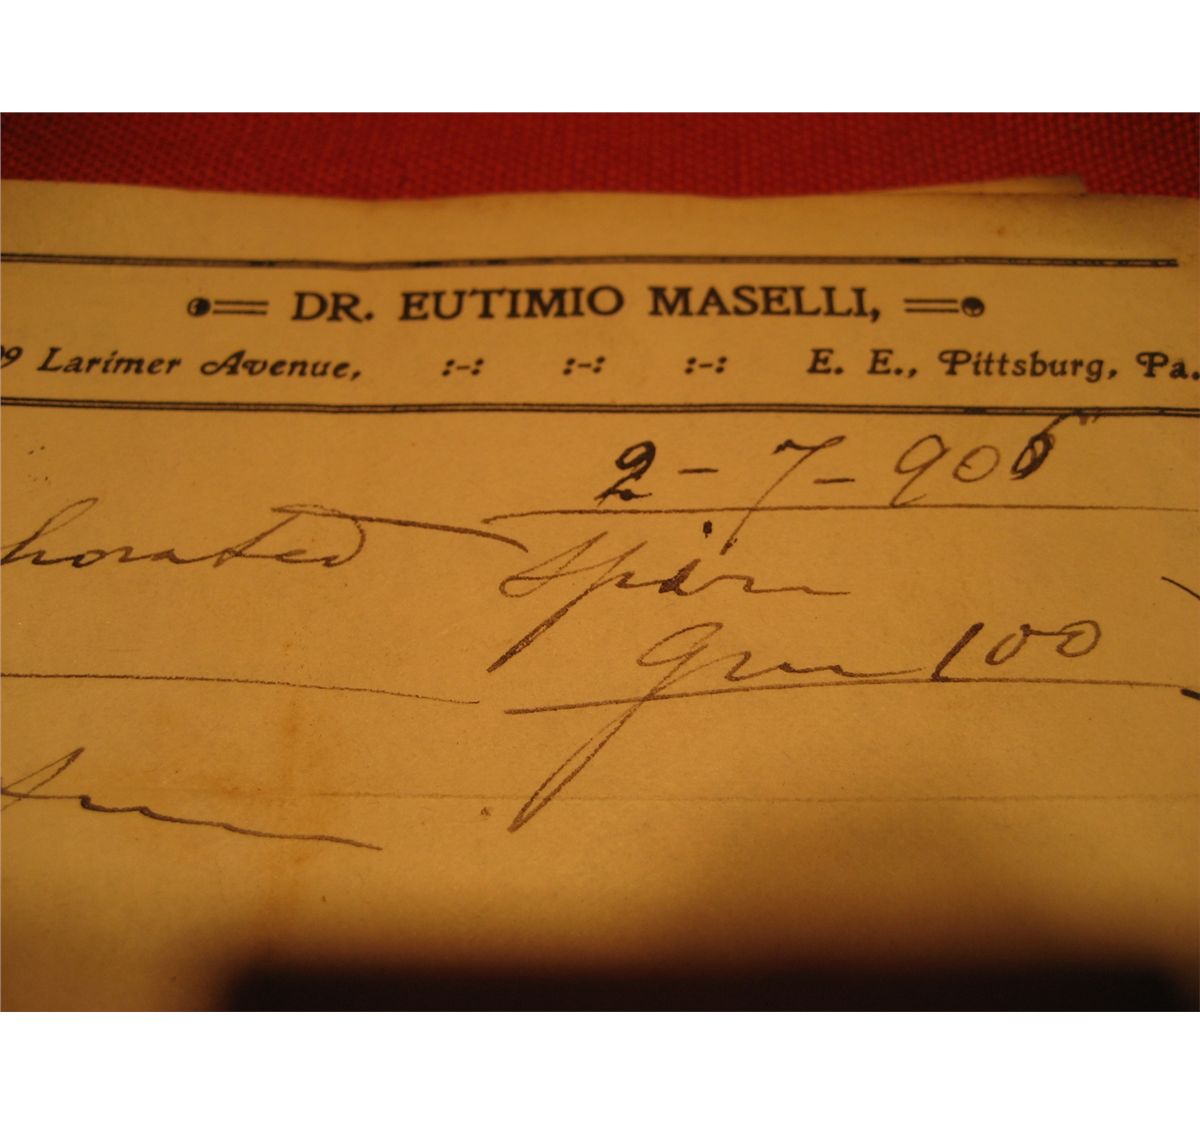 DR. EUTIMIO MASELLI,
09 Larimer Avenue, :-: :-: :-: E. E., Pittsburg, Pa.
2-7-906
horated Spir
100